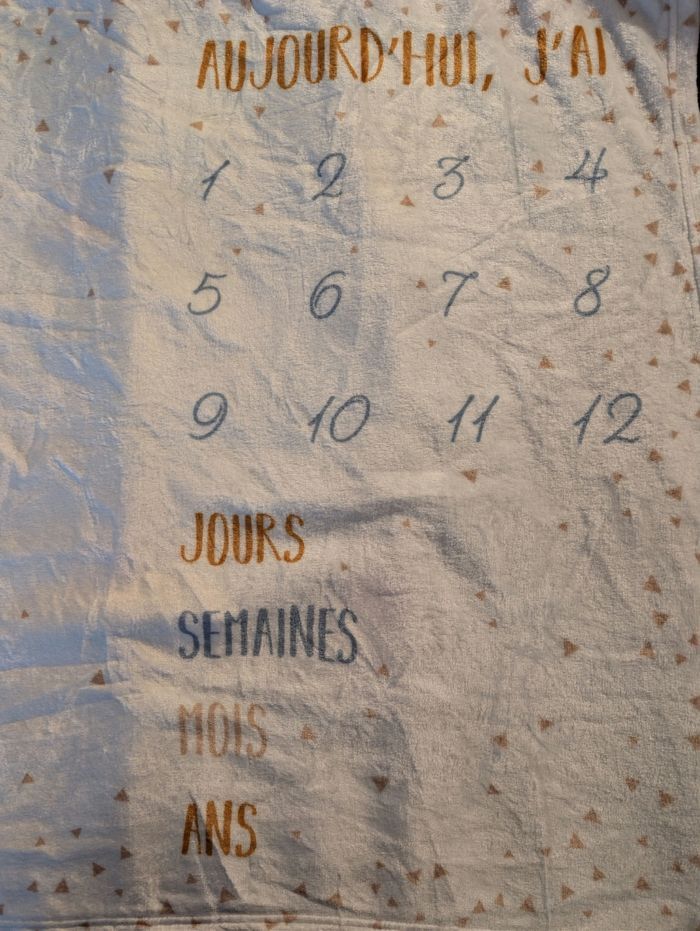 AUJOURD'HUI, J'AI
1 2 3 4
5 6 7 8
9 10 11 12
JOURS
SEMAINES
MOIS
ANS